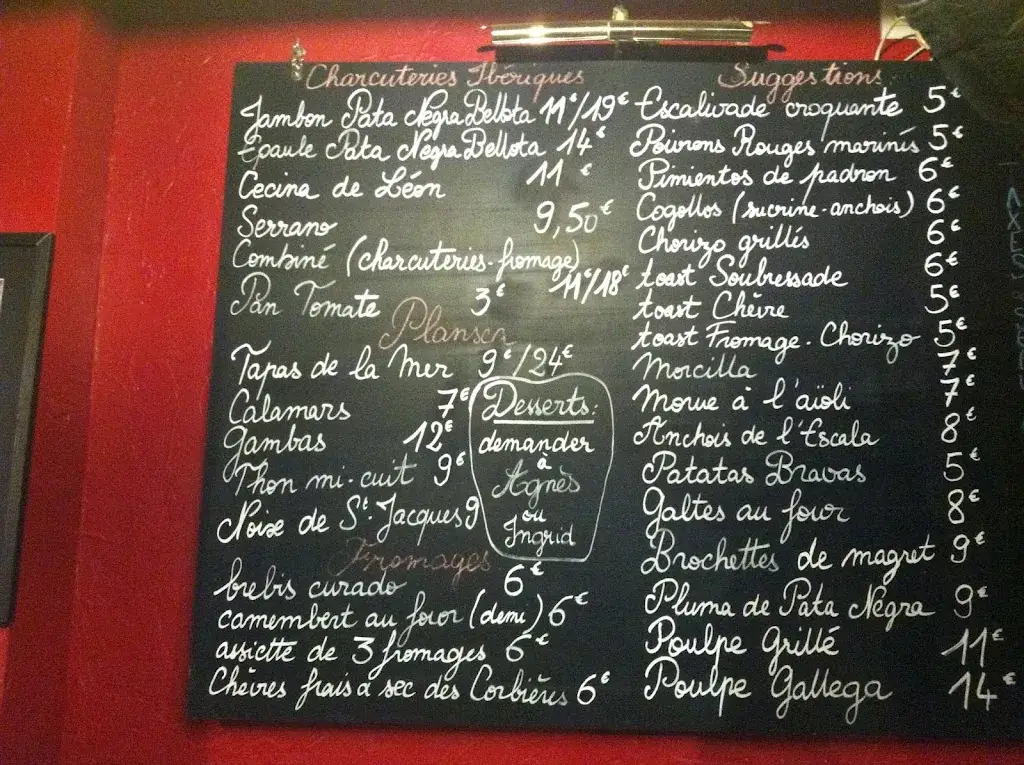 Charcuteries Ibériques
Jambon Pata Negra Bellota 11€/19€
Epaule Pata Negra Bellota 14€
Cecina de Léon 11€
Serrano 9,50€
Combiné (charcuteries-fromage) 11€/18€
Pan Tomate 3€
Plancha
Tapas de la Mer 9€/24€
Calamars 7€
Gambas 12€
Thon mi-cuit 9€
Noix de St. Jacques 9
Desserts:
demander
à
Agnès
ou
Ingrid
Fromages
brebis curado 6€
camembert au four (demi) 6€
assiette de 3 fromages 6€
Chèvres frais à sec des Corbières 6€
Suggestions
Escalivade croquante 5€
Poivrons Rouges marinés 5€
Pimientos de padron 6€
Cogollos (sucrine-anchois) 6€
Chorizo grillés 6€
toast Soubressade 6€
toast Chèvre 5€
toast Fromage-Chorizo 5€
Morcilla 7€
Morue à l'aïoli 7€
Anchois de l'Escala 8€
Patatas Bravas 5€
Galtes au four 8€
Brochettes de magret 9€
Pluma de Pata Negra 9€
Poulpe Grillé 11€
Poulpe Gallega 14€